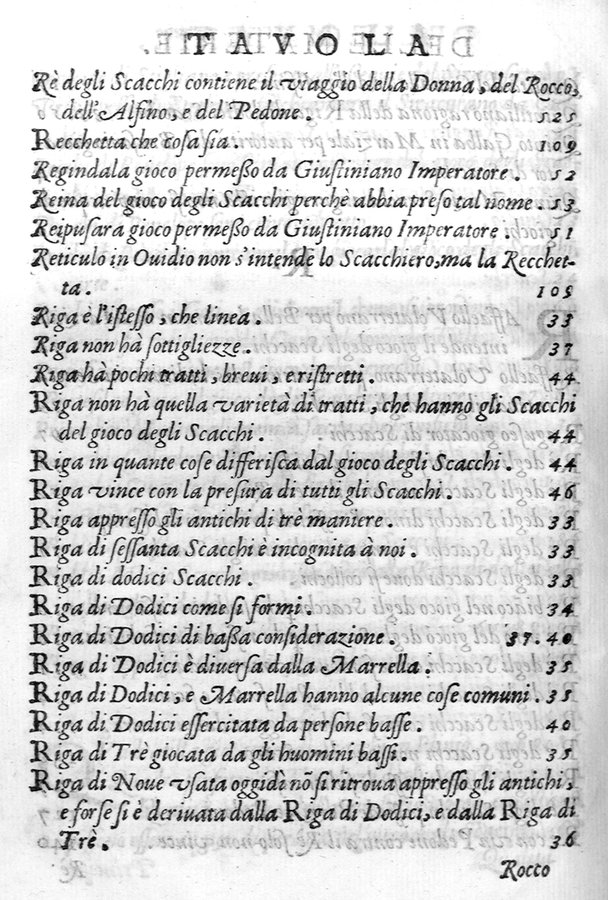 TAVOLA
Rè degli Scacchi contiene il viaggio della Donna, del Rocco,
dell'Alfino, e del Pedone. 525
Recchetta che cosa sia. 109
Regindala gioco permeßo da Giustiniano Imperatore. 52
Reina del gioco degli Scacchi perchè abbia preso tal nome. 53
Reipusara gioco permeßo da Giustiniano Imperatore. 51
Reticulo in Ouidio non s'intende lo Scacchiero, ma la Recchet-
ta. 105
Riga è l'istesso, che linea. 33
Riga non hà sottigliezze. 37
Riga hà pochi tratti, breui, e ristretti. 44
Riga non hà quella varietà di tratti, che hanno gli Scacchi
del gioco degli Scacchi. 44
Riga in quante cose differisca dal gioco degli Scacchi. 44
Riga vince con la presura di tutti gli Scacchi. 46
Riga appresso gli antichi di trè maniere. 33
Riga di sessanta Scacchi è incognita à noi. 33
Riga di dodici Scacchi. 33
Riga di Dodici come si formi. 34
Riga di Dodici di baßa considerazione. 37. 40
Riga di Dodici è diuersa dalla Marrella. 35
Riga di Dodici, e Marrella hanno alcune cose comuni. 35
Riga di Dodici essercitata da persone basse. 40
Riga di Trè giocata da gli huomini bassi. 35
Riga di Noue vsata oggidì nõ si ritroua appresso gli antichi,
e forse si è deriuata dalla Riga di Dodici, e dalla Riga di
Trè. 36
Rocco